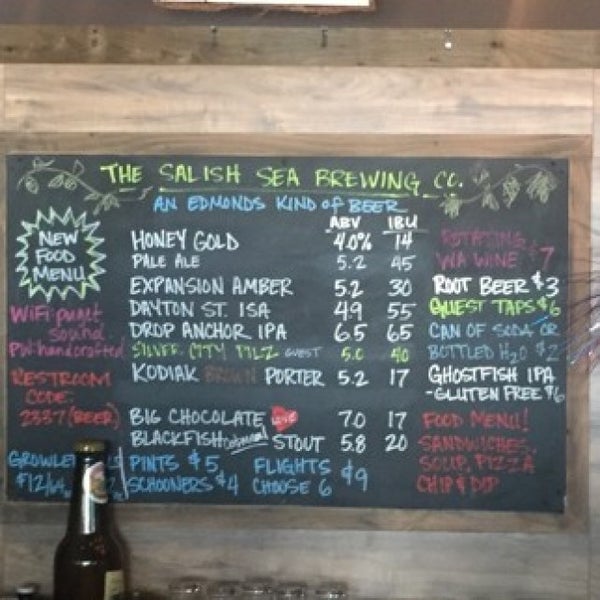 THE SALISH SEA BREWING CO.
AN EDMONDS KIND OF BEER
ABV IBU
NEW
FOOD
MENU
HONEY GOLD 4.0% 14
PALE ALE 5.2 45
EXPANSION AMBER 5.2 30
DAYTON ST. ISA 4.9 55
DROP ANCHOR IPA 6.5 65
SILVER CITY PILZ GUEST 5.0 40
KODIAK BROWN PORTER 5.2 17
BIG CHOCOLATE LOVE 7.0 17
BLACKFISH Oatmeal STOUT 5.8 20
WiFi: puget
sound
PW: handcrafted
RESTROOM
CODE:
2337 (BEER)
GROWLER
$12/64
PINTS $5
SCHOONERS $4
FLIGHTS
CHOOSE 6 $9
ROTATING
WA WINE $7
ROOT BEER $3
GUEST TAPS $6
CAN OF SODA OR
BOTTLED H2O $2
GHOSTFISH IPA
-GLUTEN FREE $6
FOOD MENU!
SANDWICHES,
SOUP, PIZZA
CHIP & DIP